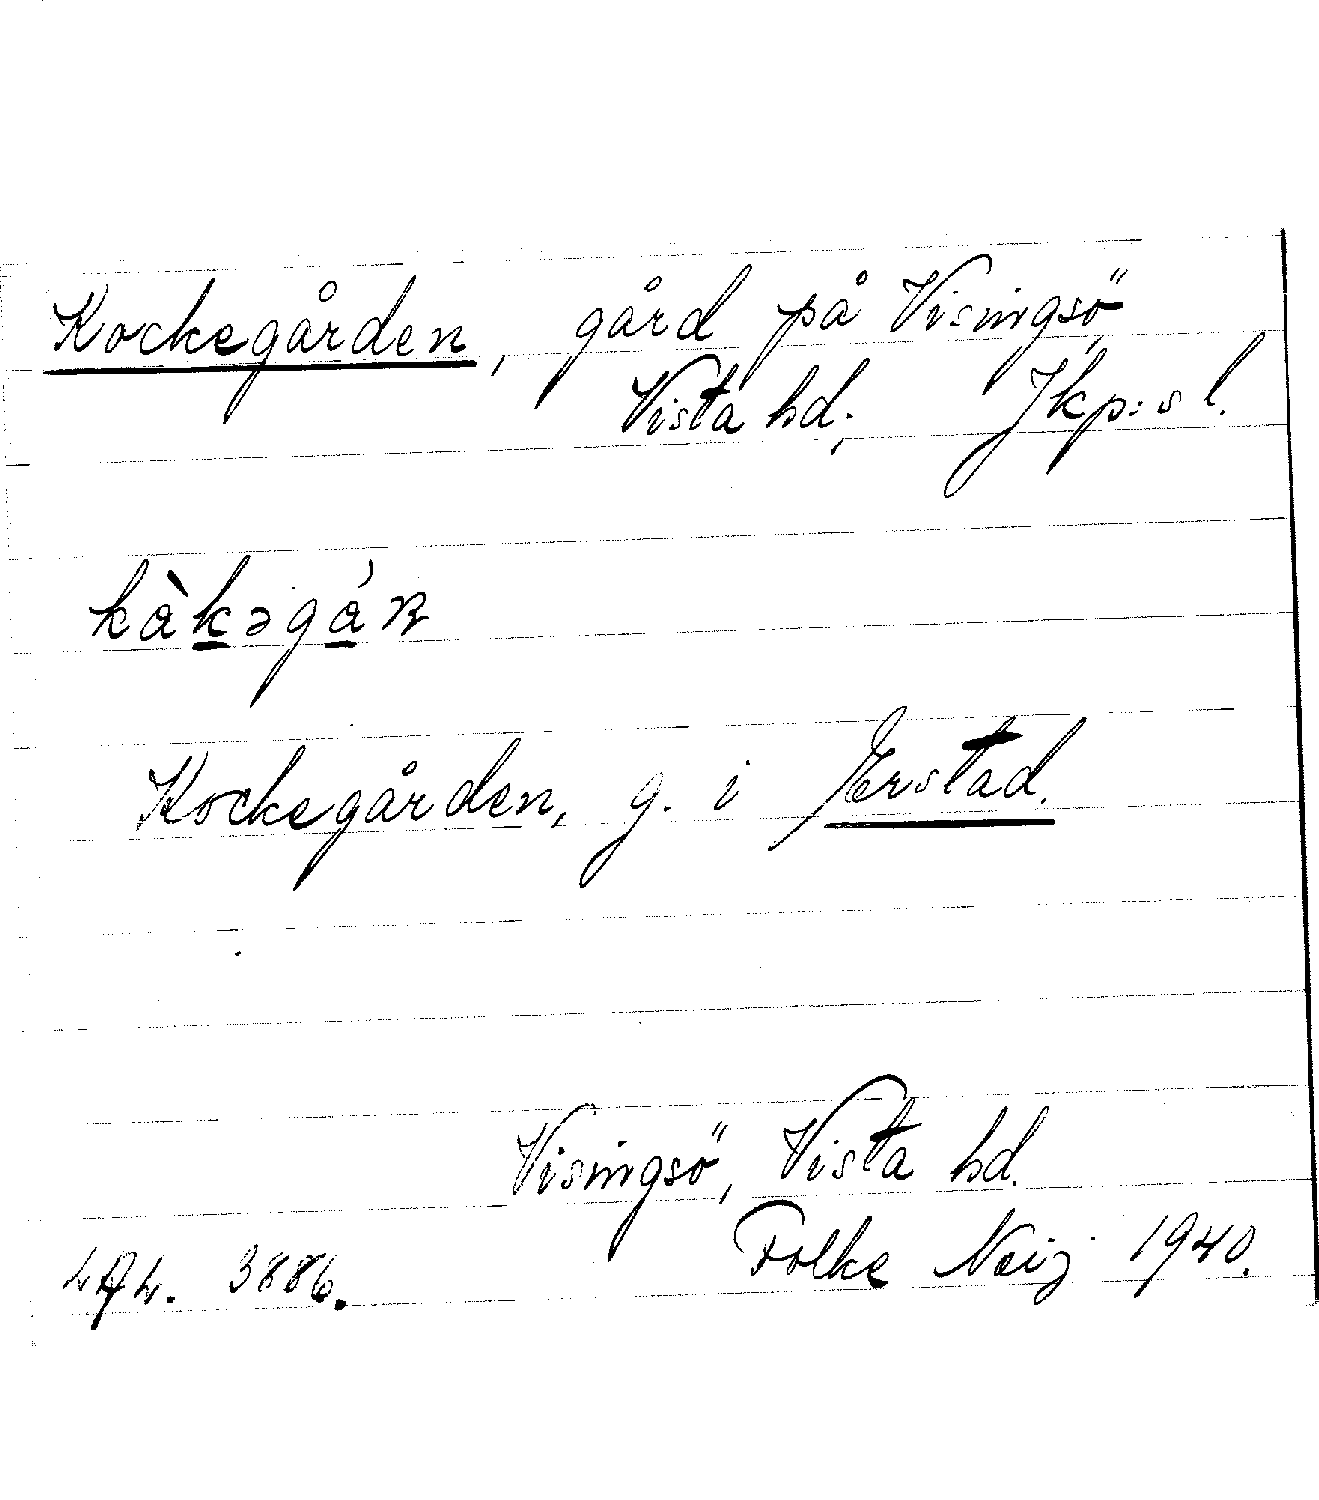 Kockegården, gård på Visingsö,
Vista hd; Jkp:s l.
kàkəgán
Kockegården, g. i Erstad.
Visingsö, Vista hd.
Folke Neij 1940.
3886.